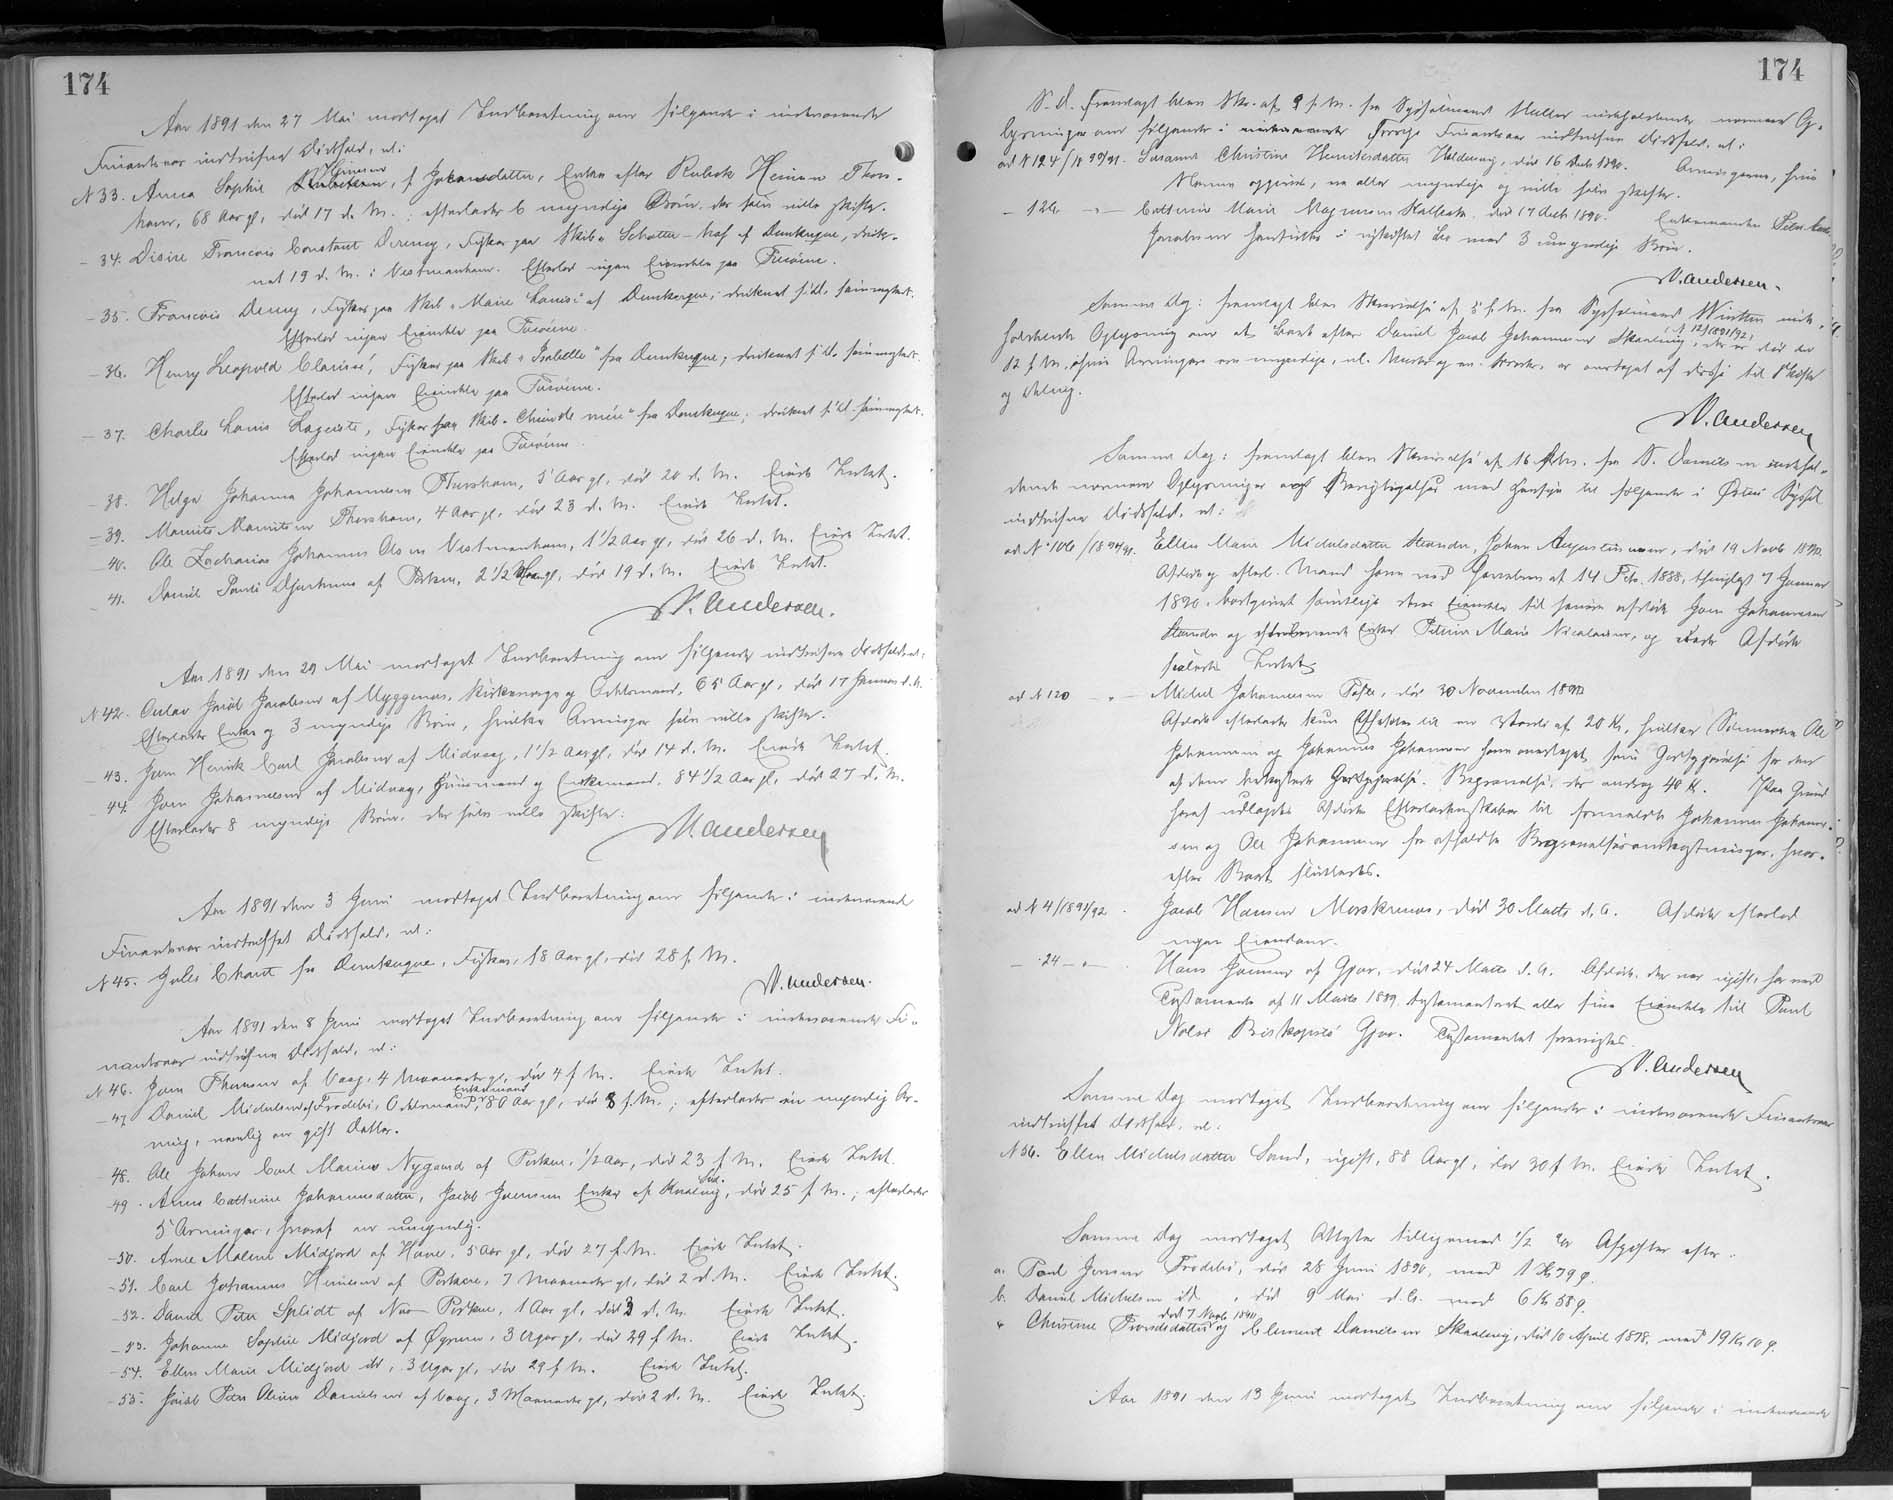 174
Aar 1891 den 27 Mai modtaget Indberetning om følgende i indeværende
Finantsaar indtrufne Dødsfald, nl:
N 33. Anna Sophie Heinesen, f Johansdatter, Enke efter Rubek Heinesen Thors-
havn, 68 Aar gl, død 17 d. M.; efterlader 6 myndige Børn, der selv ville skifte.
- 34. Disire Francois Constant Dereney, Fisker paa Skib „Schotter-hof af Dunkerque, druk-
net 19 d. M. i Vestmanhavn. Efterlod ingen Eiendele paa Færøerne.
- 35. Francois Demey, Fisker paa Skib „Marie Louise" af Dunkerque; druknet s. St. samme
Efterlod ingen Eiendele paa Færøerne.
- 36. Henry Leopold Clarisse, Fisker paa Skib „Isabelle" fra Dunkerque; druknet s. St.
Efterlod ingen Eiendele paa Færøerne.
- 37. Charles Louis Lageiste, Fisker paa Skib fra Dunkerque; druknet s. St.
Efterlod ingen Eiendele paa Færøerne.
- 38. Helga Johanna Johannesen Thorshavn, 5 Aar gl, død 20 d. M. Eiede Intet.
- 39. Mouritz Mouritzen Thorshavn, 4 Aar gl, død 23 d. M. Eiede Intet.
- 40. Ole Zacharias Johannes Olsen Vestmanhavn, 1 1/2 Aar gl, død 26 d. M. Eiede Intet.
- 41. Daniel Pauli Djurhuus af Porkere, 2 1/2 gl, død 19 d. M. Eiede Intet.
N. Andersen.
Aar 1891 den 29 Mai modtaget Indberetning om følgende indtrufne Dødsfald nl:
N 42. Joseph Jacobsen af Myggenæs, Kirkeværge og Odelsmand, 65 Aar gl, død 17 Januar d. A.
Efterlader Enke og 3 myndige Børn, hvilke Arvinger selv ville skifte.
- 43. Joen Henrik Carl Jacobsen af Midvaag, 1 1/2 Aar gl, død 14 d. M. Eiede Intet.
- 44. Joen Johannesen af Midvaag, Huusmand og Enkemand, 84 1/2 Aar gl, død 27 d. M.
Efterlader 8 myndige Børn, der selv ville skifte.
N. Andersen
Aar 1891 den 3 Juni modtaget Indberetning om følgende i indeværende
Finantsaar indtruffet Dødsfald, nl:
N 45. Jules Chart fra Dunkerque, Fisker, 18 Aar gl, død 28 f. M.
N. Andersen.
Aar 1891 den 8 Juni modtaget Indberetning om følgende i indeværende Fi-
nantsaar indtrufne Dødsfald, nl:
N 46. Joen Thomsen af Vaag, 4 Maaneder gl, død 4 f. M. Eiede Intet.
- 47. Daniel Michelsen af Frodebø, Odelsmand, Enkemand, 80 Aar gl, død 8 f. M.; efterlader en myndig Ar-
ving, nemlig en gift Datter.
- 48. Ole Johan Carl Marius Nygaard af Porkere, 1/2 Aar, død 23 f. M. Eiede Intet.
- 49. Anna Cathrine Johannesdatter, Jacob Joensens Enke af Kvalvig, død 25 f. M.; efterlader
5 Arvinger, hvoraf en umyndig.
- 50. Anne Malene Midjord af Hove, 5 Aar gl, død 27 f. M. Eiede Intet.
- 51. Carl Johannes Heinesen af Porkere, 7 Maaneder gl, død 2 d. M. Eiede Intet.
- 52. Daniel Peter Splidt af Næs Porkere, 1 Aar gl, død 3 d. M. Eiede Intet.
- 53. Johanne Sophie Midjord af Øgrene, 3 Uger gl, død 29 f. M. Eiede Intet.
- 54. Ellen Marie Midjord ibd, 3 Uger gl, død 29 f. M. Eiede Intet.
- 55. Jacob Peter Oliver Danielsen af Vaag, 3 Maaneder gl, død 2 d. M. Eiede Intet.
174
S. D. fremlagt blev Skr. af 9 f. M. fra Sysselmand Müller indeholdende nærmere Op-
lysninger om følgende i forrige Finantsaar indtrufne Dødsfald, nl:
ad N 124/1890/91. Susanne Christine Hentzedatter Hvidenæs, død 16 Decb 1890. Arvingerne, hvis
Navne opgives, ere alle myndige og ville selv skifte.
- 126 - " - Cathrine Marie Magnusen Kalbak, død 17 Decb 1890. Enkemanden Peter
Jacobsen hensidder i uskiftet Bo med 3 umyndige Børn.
N. Andersen.
Samme Dag: fremlagt blev Skrivelse af 5 f. M. fra Sysselmand Winther inde-
holdende Oplysning om at Boet efter Daniel Jacob Johannesen Skaaling, (N 12/1891/92) der er død den
12 f. M. hvis Arvinger ere umyndige, nl. Moder og en Broder, er overtaget af disse til Skifte
og Deling.
N. Andersen
Samme Dag: fremlagt blev Skrivelse af 16 f. M. fra D. Danielsen indehol-
dende nærmere Oplysninger og Berigtigelser med Hensyn til følgende i Østerø Syssel
indtrufne Dødsfald, nl:
ad N 106/1890/91. Ellen Marie Michelsdatter Strander, Johan Augustinussen, død 19 Novb 1890.
Afdøde og efterl. Mand have ved Gavebrev af 14 Feb. 1888, thinglyst 7 Januar
1890, bortgivet samtlige deres Eiendele til Sønnen afdøde Joen Johannesen
Strander og efterlevende Enke Petrine Marie Nicolaisen, og eiede Afdøde
saaledes Intet.
ad N 120 - " - Michel Johannesen Toftes, død 30 November 1890
Afdøde efterlader kun Effekter til en Værdi af 20 Kr, hvilke Sønnerne Ole
Johannesen og Johannes Johannesen have overtaget, som Godtgjørelse for den
af dem bekostede Begravelse, der androg 40 Kr. Paa Grund
heraf udlagdes Afdødes Efterladenskaber til formeldte Johannes Johannes-
sen og Ole Johannesen for afholdte Begravelsesomkostninger, hvor-
efter Boet sluttedes.
ad N 4/1891/92. Jacob Hansen Morskranes, død 30 Marts d. A. Afdøde efterlod
ingen Eiendom.
- 24 - " - Hans Joensen af Gjov, død 24 Marts d. A. Afdøde, der var ugift, har ved
Testamente af 11 Marts 1889 testamenteret alle sine Eiendele til Poul
Nolsø Biskopsø Gjov. Testamentet forevistes.
N. Andersen
Samme Dag modtaget Indberetning om følgende i indeværende Finantsaar
indtruffet Dødsfald, nl:
N 56. Ellen Michelsdatter Sand, ugift, 88 Aar gl, død 30 f. M. Eiede Intet.
Samme Dag modtaget Attester tilligemed 1/2 % Afgifter efter:
a. Poul Joensen Frodebø, død 28 Juni 1890, med 1 Kr 79 Ø.
b. Daniel Michelsen ibd, død 9 Mai d. A. med 6 Kr 58 Ø.
c. Christine død 7 Novb og Clement Danielsen Skaaleng, død 10 April 1878, med 19 Kr 10 Ø.
Aar 1891 den 13 Juni modtaget Indberetning om følgende i indeværende